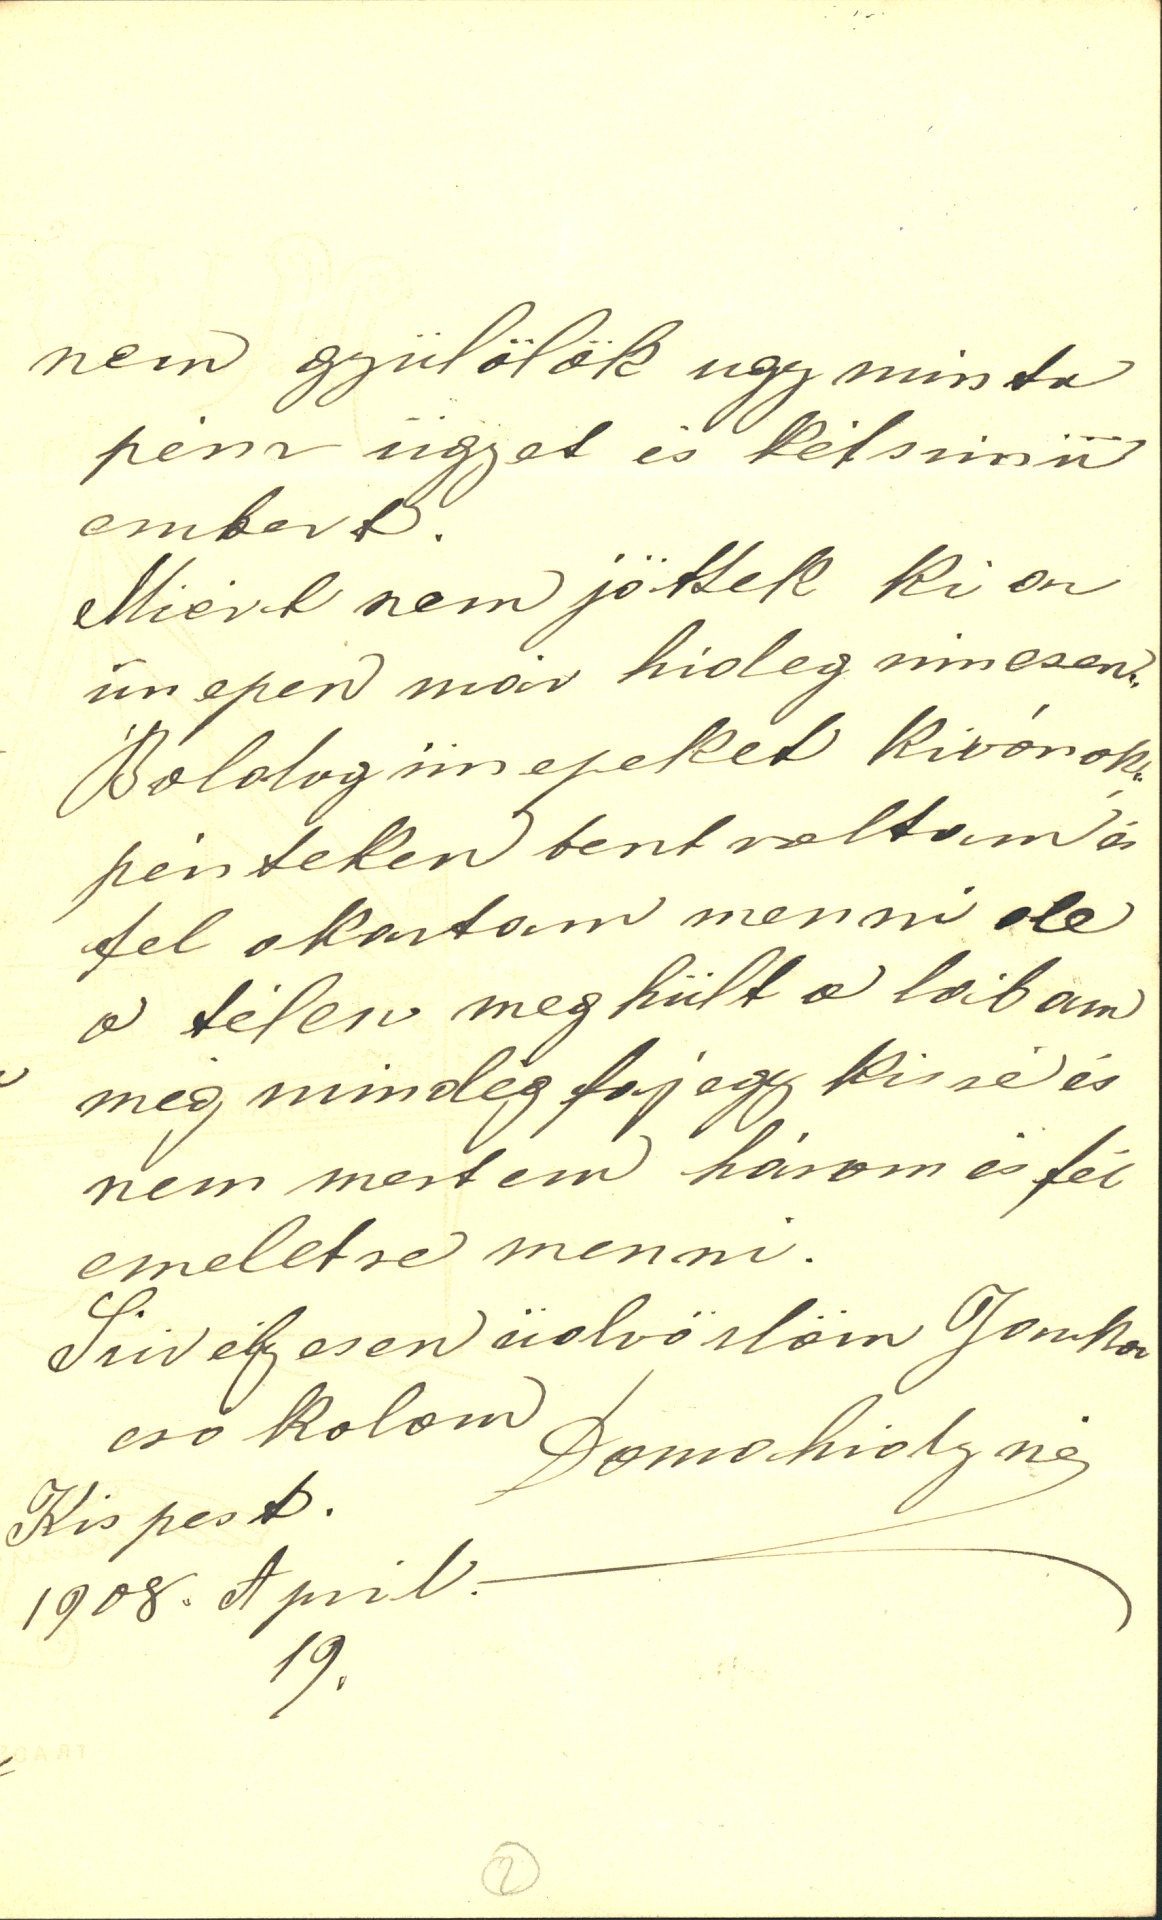 nem gyülölök ugy mint a
pénz ügyet és kétszinüü
embert.
Miért nem jöttek ki az
ünepen már hideg nincsen.
Boldog ünepeket kivánok.
pénteken bent voltam és
fel akartam menni de
a télen meghült a lábam
még mindég fáj egy kissé és
nem mertem három és fél
emeletre menni.
Sziv élyesen üdvözlöm Janka
csó kolom Domahidyné
Kispest.
1908. April.
19.
2